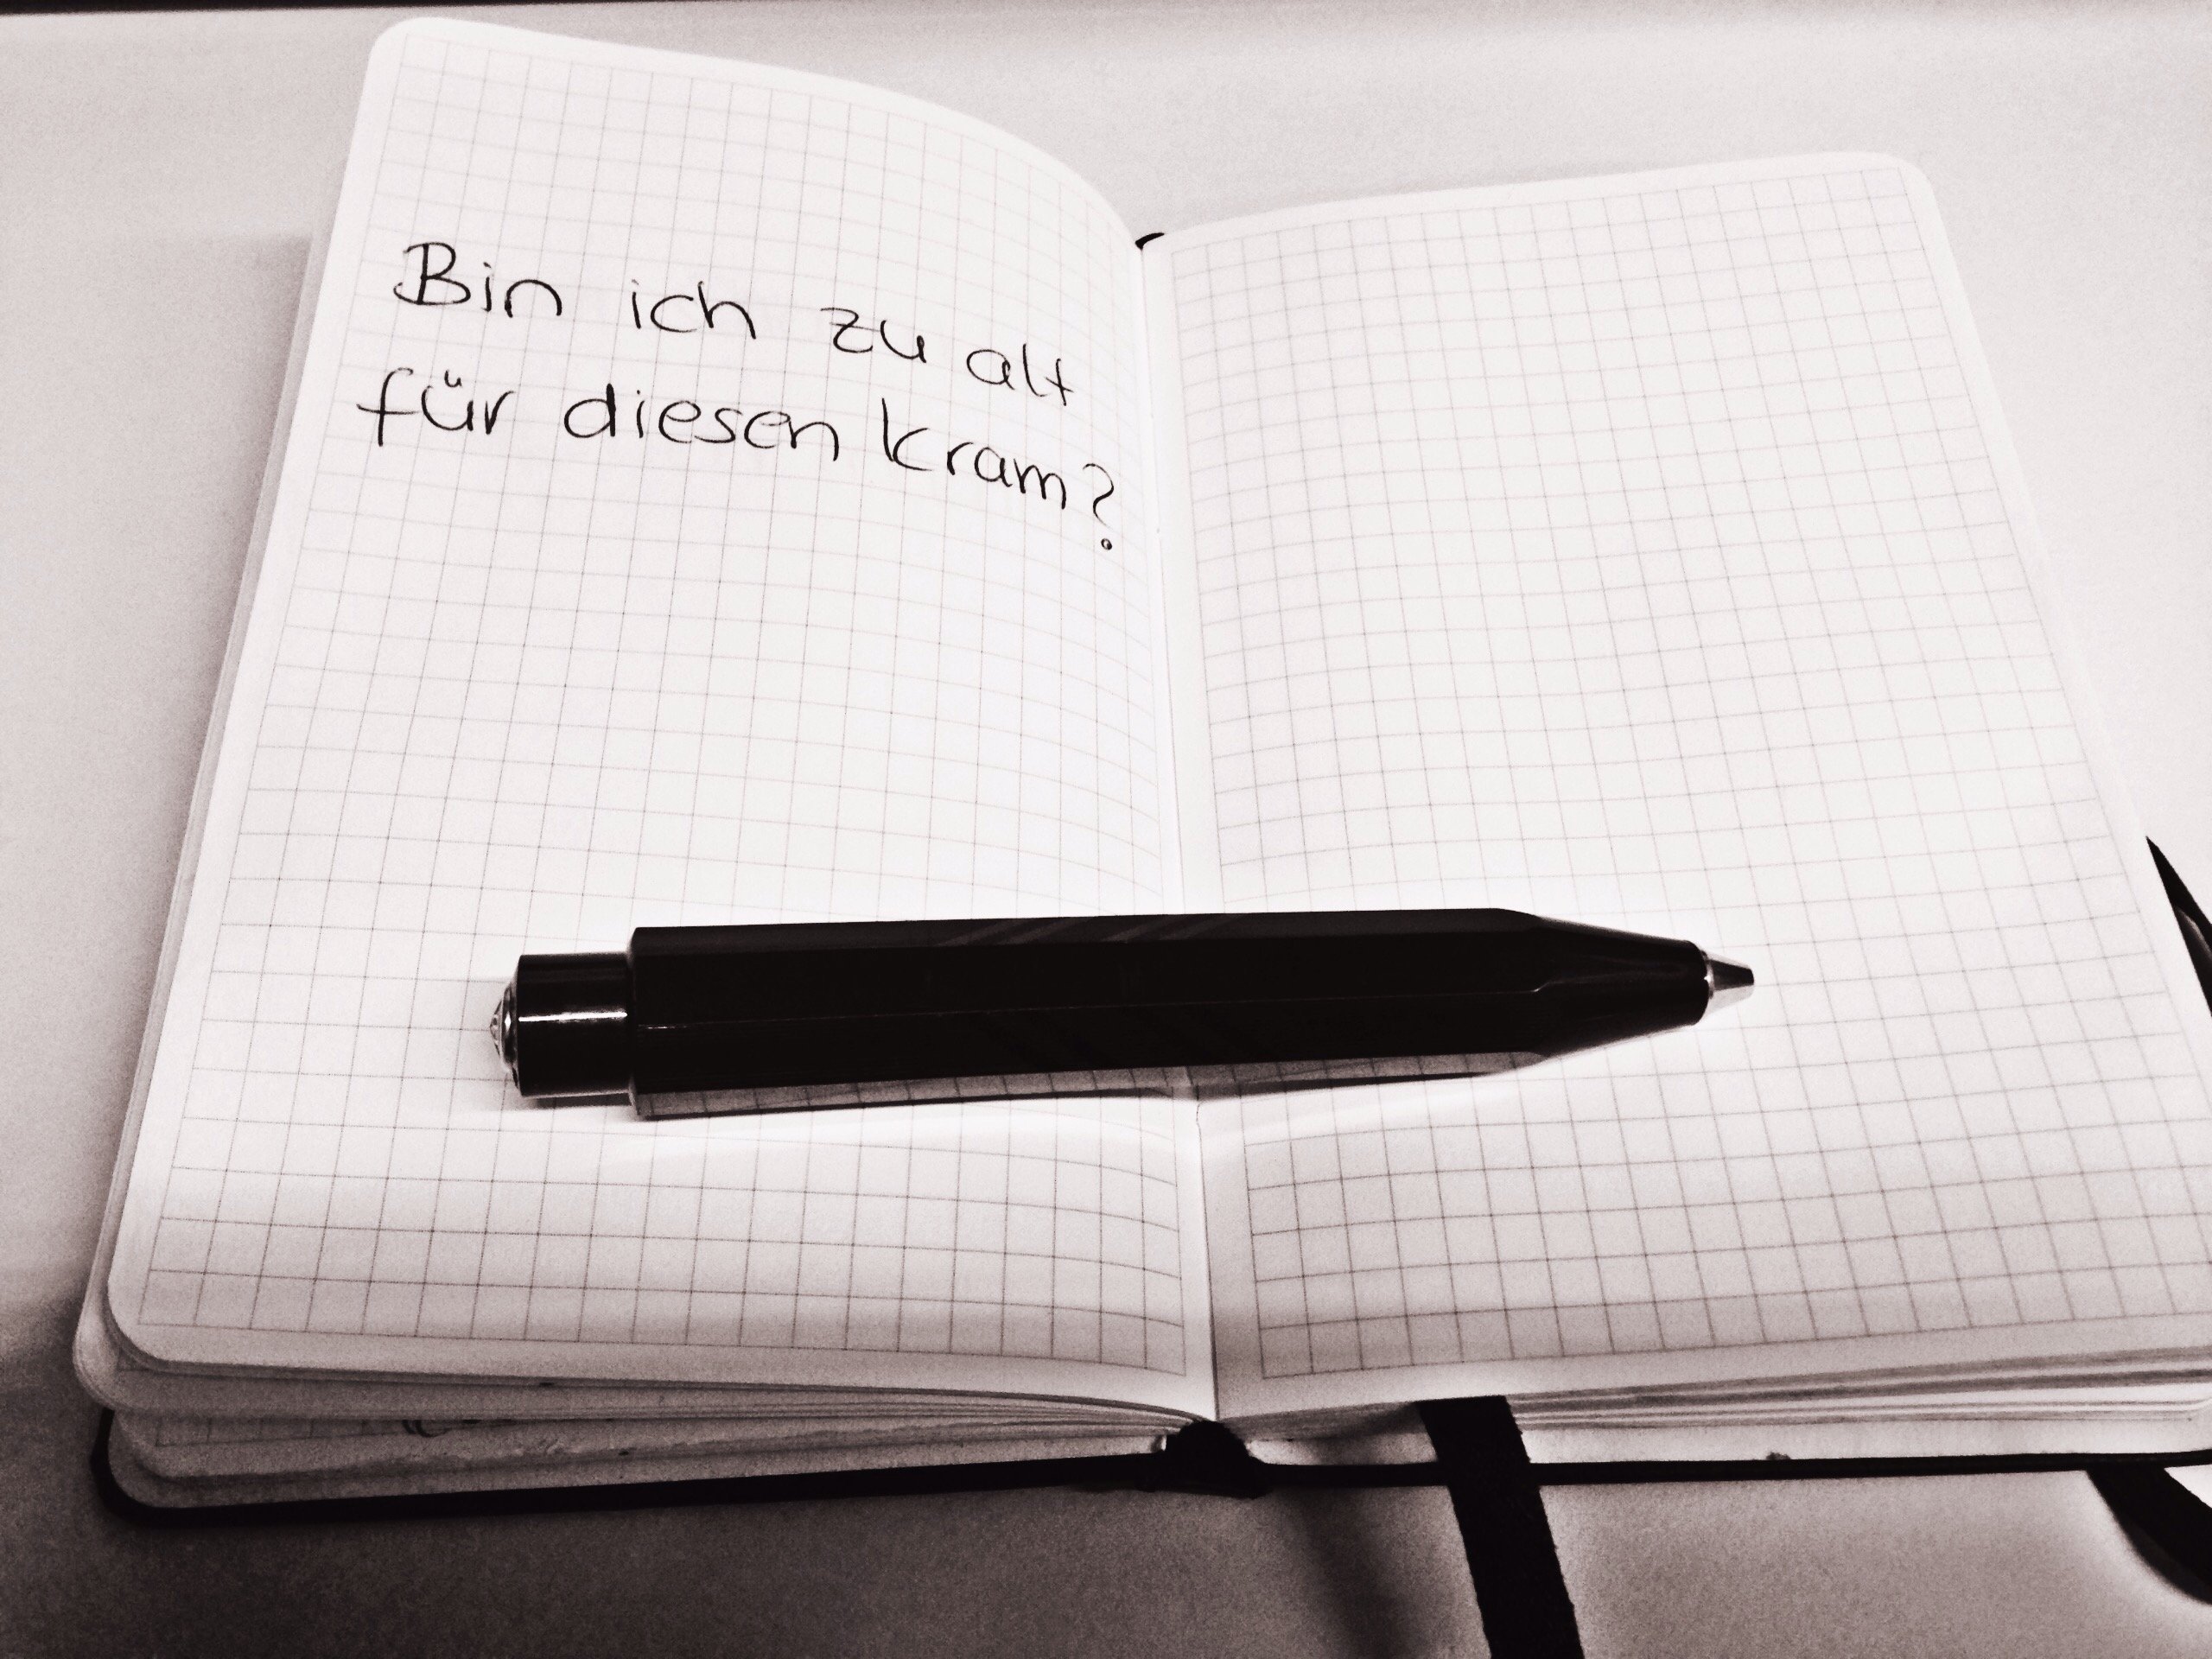 Bin ich zu alt
für diesen Kram?